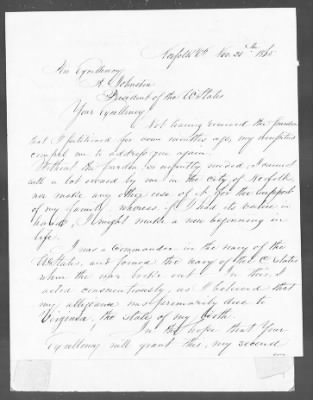 Norfolk Va Nov 28th 1865
His Excellency
A. Johnston
President of the U States
Your Excellency
Not having received the pardon
that I petitioned for some months ago, my necessities
compel me to address you again.
Without the pardon so urgently needed, I cannot
sell a lot owned by me in the city of Norfolk
nor make any other use of it for the support
of my family, whereas if I had its value in
hand, I might make a new beginning in
life.
I was a commander in the navy of the
U States, and joined the navy of the C States
when the war broke out. In this I
acted conscientiously, as I believed that
my allegiance was primarily due to
Virginia, the state of my birth.
In the hope that Your
Excellency will grant this, my second